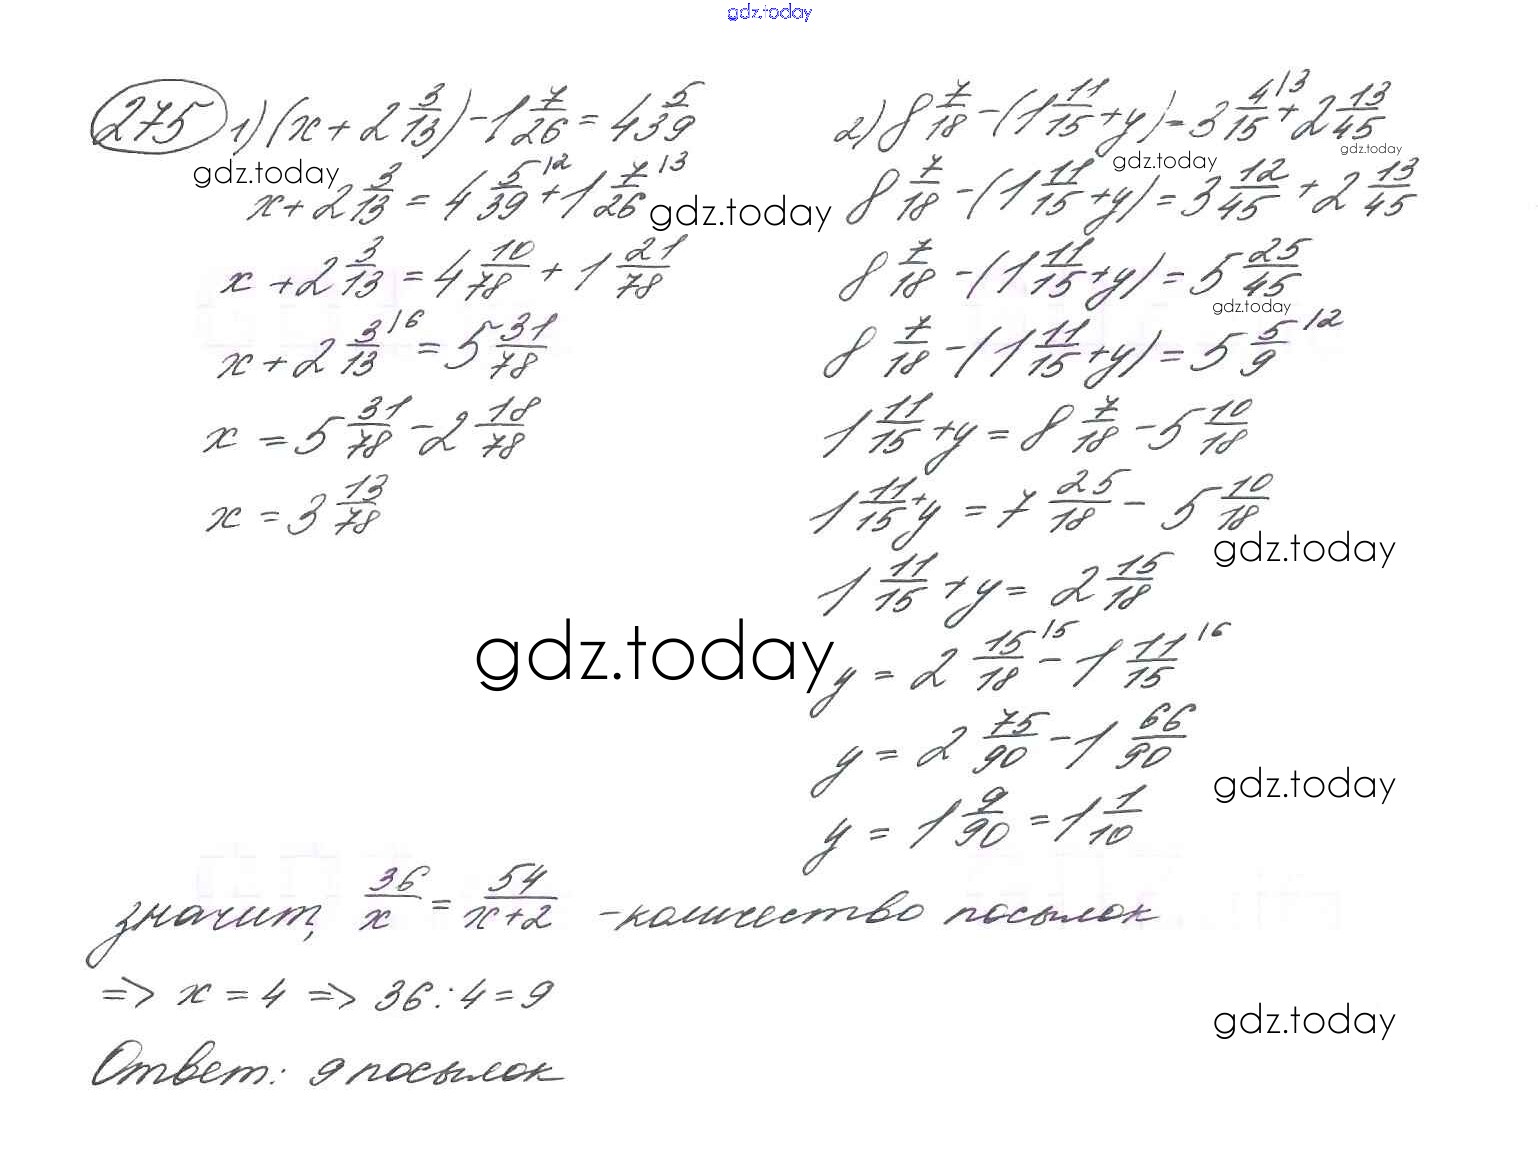 gdz.today
275 1) (x + 2 3/13) - 1 7/26 = 4 5/39
gdz.today
x + 2 3/13 = 4 5/39 |2 + 1 7/26 |3
gdz.today
x + 2 3/13 = 4 10/78 + 1 21/78
x + 2 3/13 |6 = 5 31/78
x = 5 31/78 - 2 18/78
x = 3 13/78
2) 8 7/18 - (1 11/15 + y) = 3 4/15 |3 + 2 13/45
gdz.today
gdz.today
8 7/18 - (1 11/15 + y) = 3 12/45 + 2 13/45
8 7/18 - (1 11/15 + y) = 5 25/45
gdz.today
8 7/18 - (1 11/15 + y) = 5 5/9 |2
1 11/15 + y = 8 7/18 - 5 10/18
1 11/15 + y = 7 25/18 - 5 10/18
gdz.today
1 11/15 + y = 2 15/18
gdz.today
y = 2 15/18 |5 - 1 11/15 |6
y = 2 75/90 - 1 66/90
gdz.today
y = 1 9/90 = 1 1/10
значит, 36/x = 54/(x+2) - количество посылок
=> x = 4 => 36 : 4 = 9
gdz.today
Ответ: 9 посылок